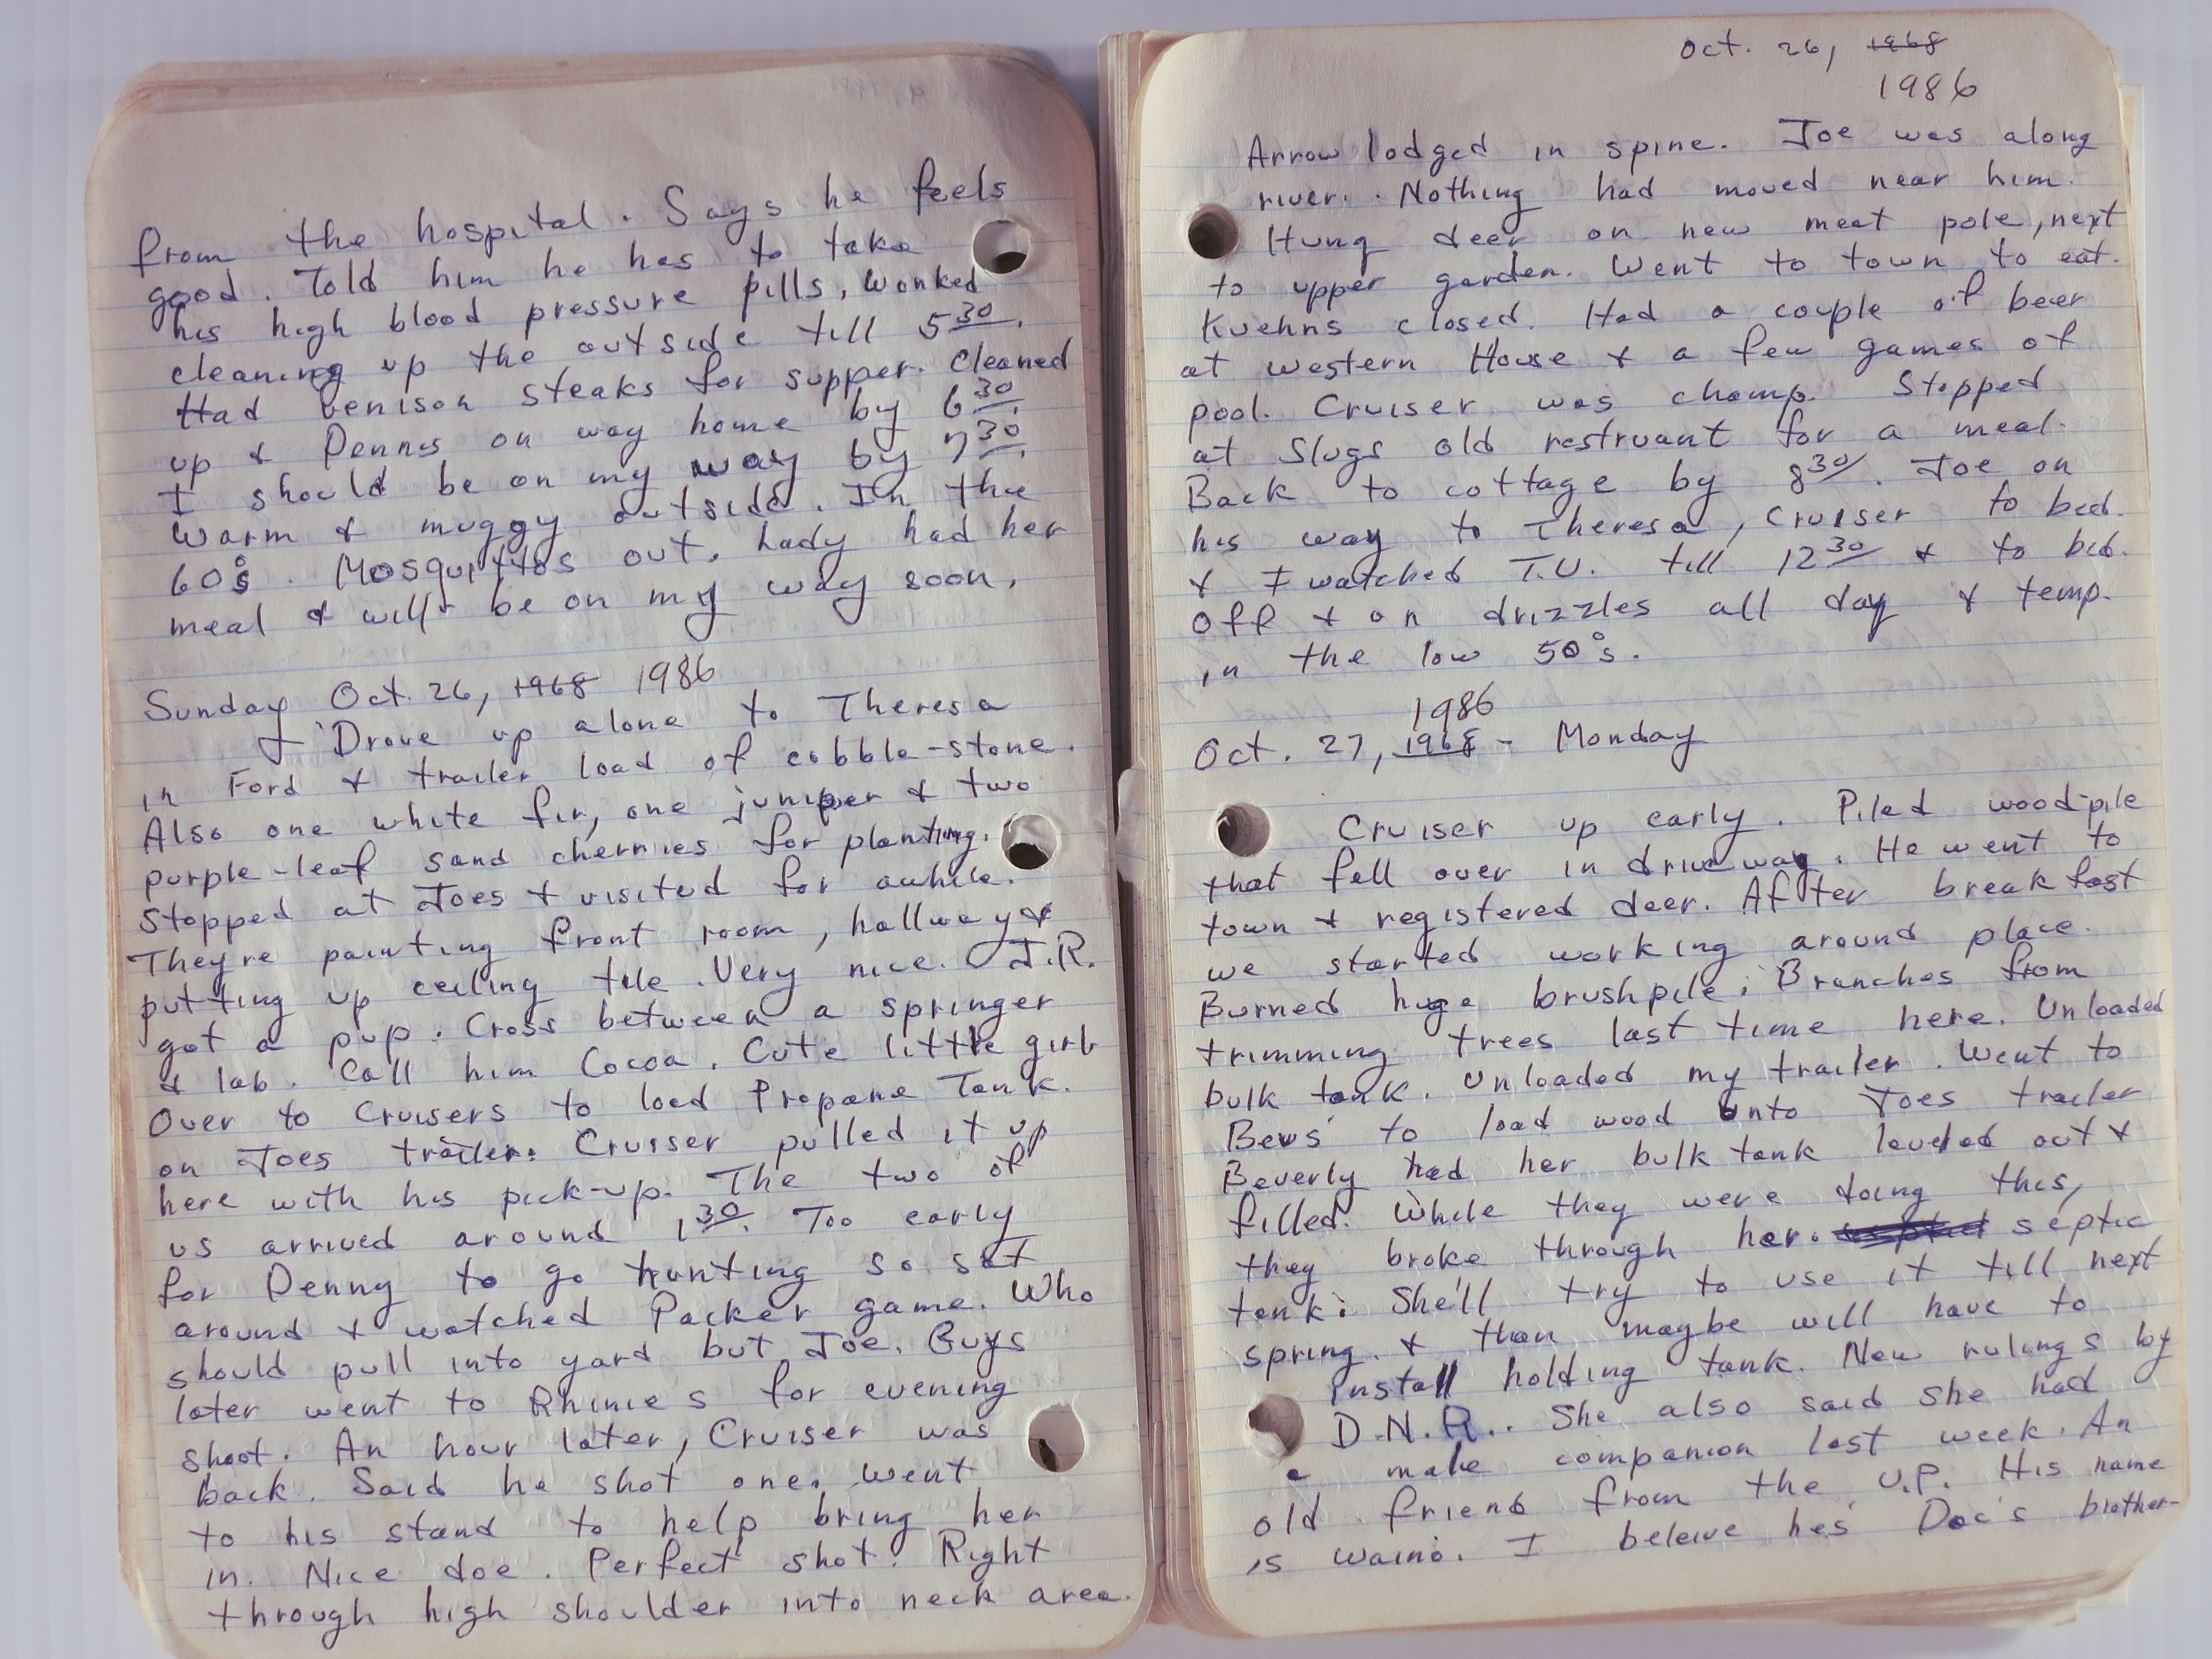 from the hospital. Says he feels
good. Told him he has to take
his high blood pressure pills, worked
cleaning up the outside till 5 30.
Had venison steaks for supper. Cleaned
up & Dennis on way home by 6 30.
I should be on my way by 7 30.
Warm & muggy outside. In the
60°s. Mosquittos out. Lady had her
meal & will be on my way soon.
Sunday Oct. 26, 1968 1986
Drove up alone to Theresa
in Ford & trailer load of cobble-stone.
Also one white fir, one juniper & two
purple-leaf sand cherries for planting.
Stopped at Joes & visited for awhile.
Theyre painting front room, hallway &
putting up ceiling tile. Very nice. J.R.
got a pup. Cross between a springer
& lab. Call him Cocoa. Cute little girl
Over to Cruisers to load Propane Tank.
on Joes trailer. Cruiser pulled it up
here with his pick-up. The two of
us arrived around 1 30. Too early
for Denny to go hunting so sat
around & watched Packer game. Who
should pull into yard but Joe. Guys
later went to Rhinie s for evening
shoot. An hour later, Cruiser was
back. Said he shot one. Went
to his stand to help bring her
in. Nice doe. Perfect shot. Right
through high shoulder into neck area.
Oct. 26, 1968
1986
Arrow lodged in spine. Joe was along
river. Nothing had moved near him.
Hung deer on new meat pole, next
to upper garden. Went to town to eat.
Kuehns closed. Had a couple of beer
at Western House & a few games of
pool. Cruiser was champ. Stopped
at Slugs old restruant for a meal.
Back to cottage by 8 30. Joe on
his way to Theresa, Cruiser to bed.
& I watched T.V. till 12 30 & to bed.
Off & on drizzles all day & temp.
in the low 50°s.
1986
Oct. 27, 1968 - Monday
Cruiser up early. Piled wood-pile
that fell over in driveway. He went to
town & registered deer. After breakfast
we started working around place.
Burned huge brushpile. Branches from
trimming trees last time here. Unloaded
bulk tank. Unloaded my trailer. Went to
Bevs to load wood onto Joes trailer
Beverly had her bulk tank leveled out &
filled. While they were doing this,
they broke through her septic
tank. She'll try to use it till next
spring. & than maybe will have to
install holding tank. New rulings by
D.N.R.. She also said she had
a male companion last week. An
old friend from the U.P. His name
is Waino. I beleive hes Doc's brother-